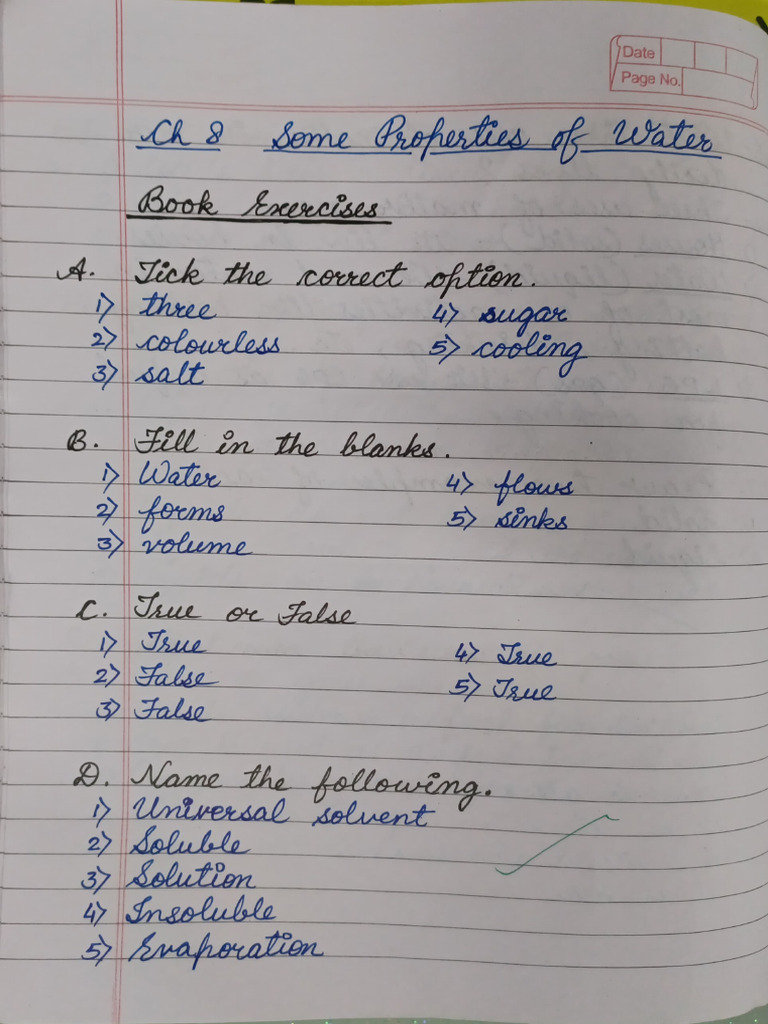 Date
Page No.
Ch 8 Some Properties of Water
Book Exercises
A. Tick the correct option.
1) three 4) sugar
2) colourless 5) cooling
3) salt
B. Fill in the blanks.
1) Water 4) flows
2) forms 5) sinks
3) volume
C. True or False
1) True 4) True
2) False 5) True
3) False
D. Name the following.
1) Universal solvent
2) Soluble
3) Solution
4) Insoluble
5) Evaporation